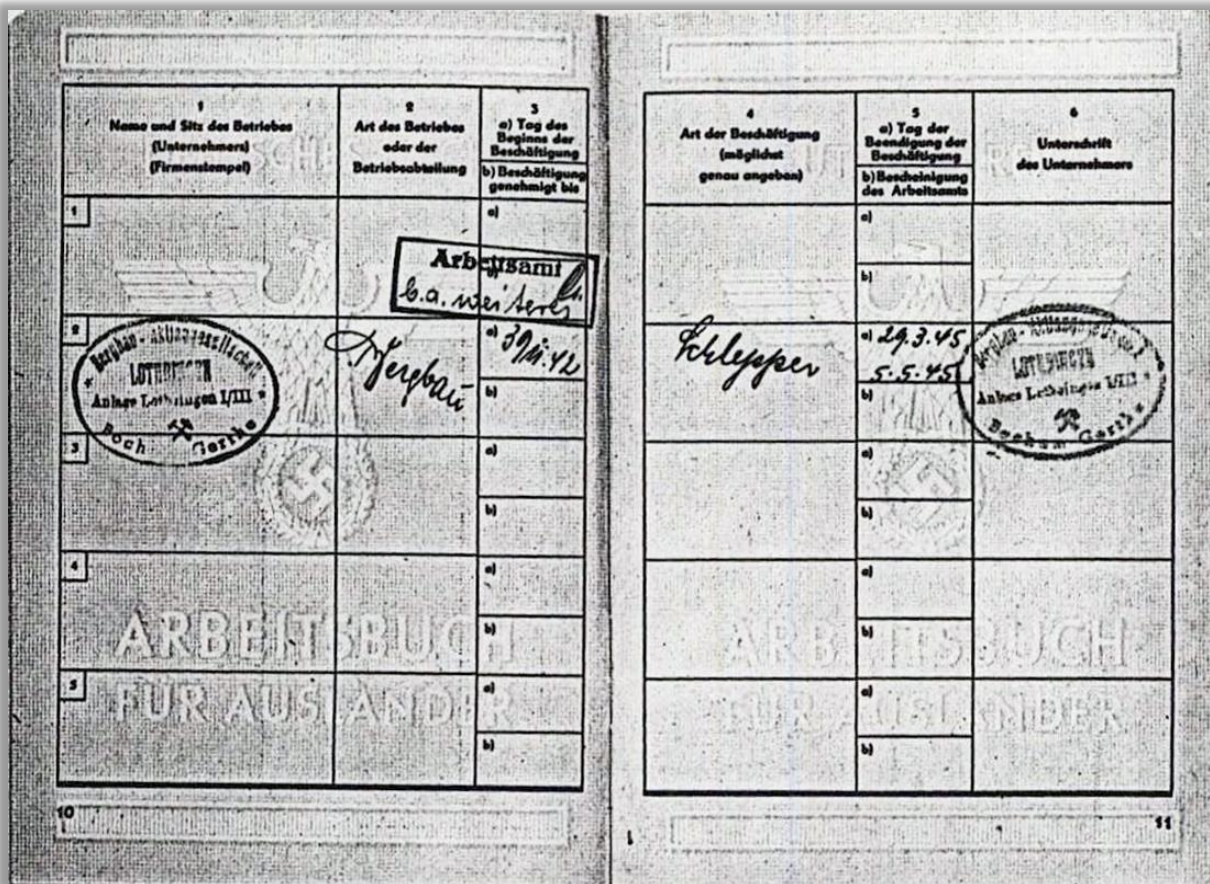 1
Name und Sitz des Betriebes
(Unternehmers)
(Firmenstempel)
2
Art des Betriebes
oder der
Betriebsabteilung
3
a) Tag des
Beginns der
Beschäftigung
b) Beschäftigung
genehmigt bis
1
a)
Arbeitsamt
b.a. weiteres
2
Bergbau - Aktiengesellschaft
LOTHRINGEN
Anlage Lothringen I/III
Boch. Gerthe
Bergbau
a)
b)
3
a)
b)
4
a)
b)
5
a)
b)
ARBEITSBUCH
FÜR AUSLÄNDER
10
4
Art der Beschäftigung
(möglichst
genau angeben)
5
a) Tag der
Beendigung der
Beschäftigung
b) Bescheinigung
des Arbeitsamts
6
Unterschrift
des Unternehmers
a)
b)
Schlepper
a) 29.3.45
5.5.45
b)
Bergbau - Aktiengesellschaft
LOTHRINGEN
Anlage Lothringen I/III
Bochum Gerthe
a)
b)
a)
b)
a)
b)
ARBEITSBUCH
FÜR AUSLÄNDER
11